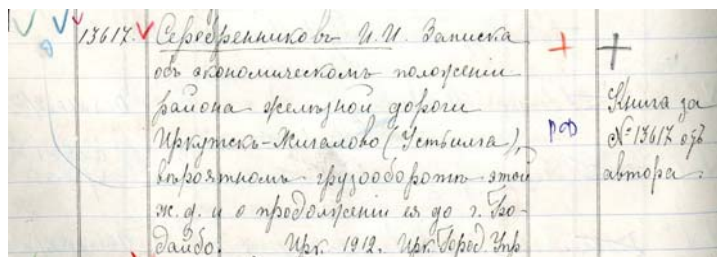 13617. Серебренниковъ И.И. Записка
объ экономическомъ положенiи
района желѣзной дороги
Иркутскъ-Жигалово (Устьилга),
вѣроятномъ грузооборотѣ этой
ж.д. и о продолженiи ея до г. Бо-
дайбо. Ирк. 1912. Ирк. Город. Упр
РФ
Книга за
№ 13617 отъ
автора.